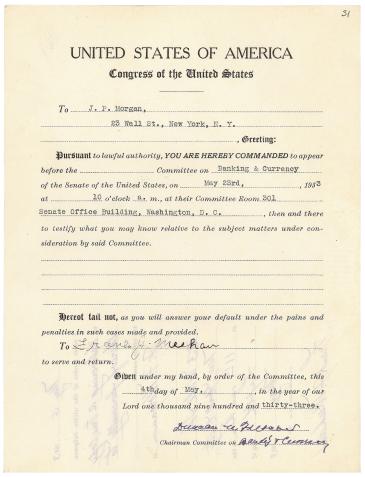 31
UNITED STATES OF AMERICA
Congress of the United States
To J. P. Morgan,
23 Wall St., New York, N. Y.
, Greeting:
Pursuant to lawful authority, YOU ARE HEREBY COMMANDED to appear
before the Committee on Banking & Currency
of the Senate of the United States, on May 23rd, , 1933
at 10 o'clock a. m., at their Committee Room 301
Senate Office Building, Washington, D. C. , then and there
to testify what you may know relative to the subject matters under con-
sideration by said Committee.
Hereof fail not, as you will answer your default under the pains and
penalties in such cases made and provided.
To Frank J. Meehan
to serve and return.
Given under my hand, by order of the Committee, this
4th day of May. , in the year of our
Lord one thousand nine hundred and thirty-three.
Duncan U. Fletcher
Chairman Committee on Banking & Currency